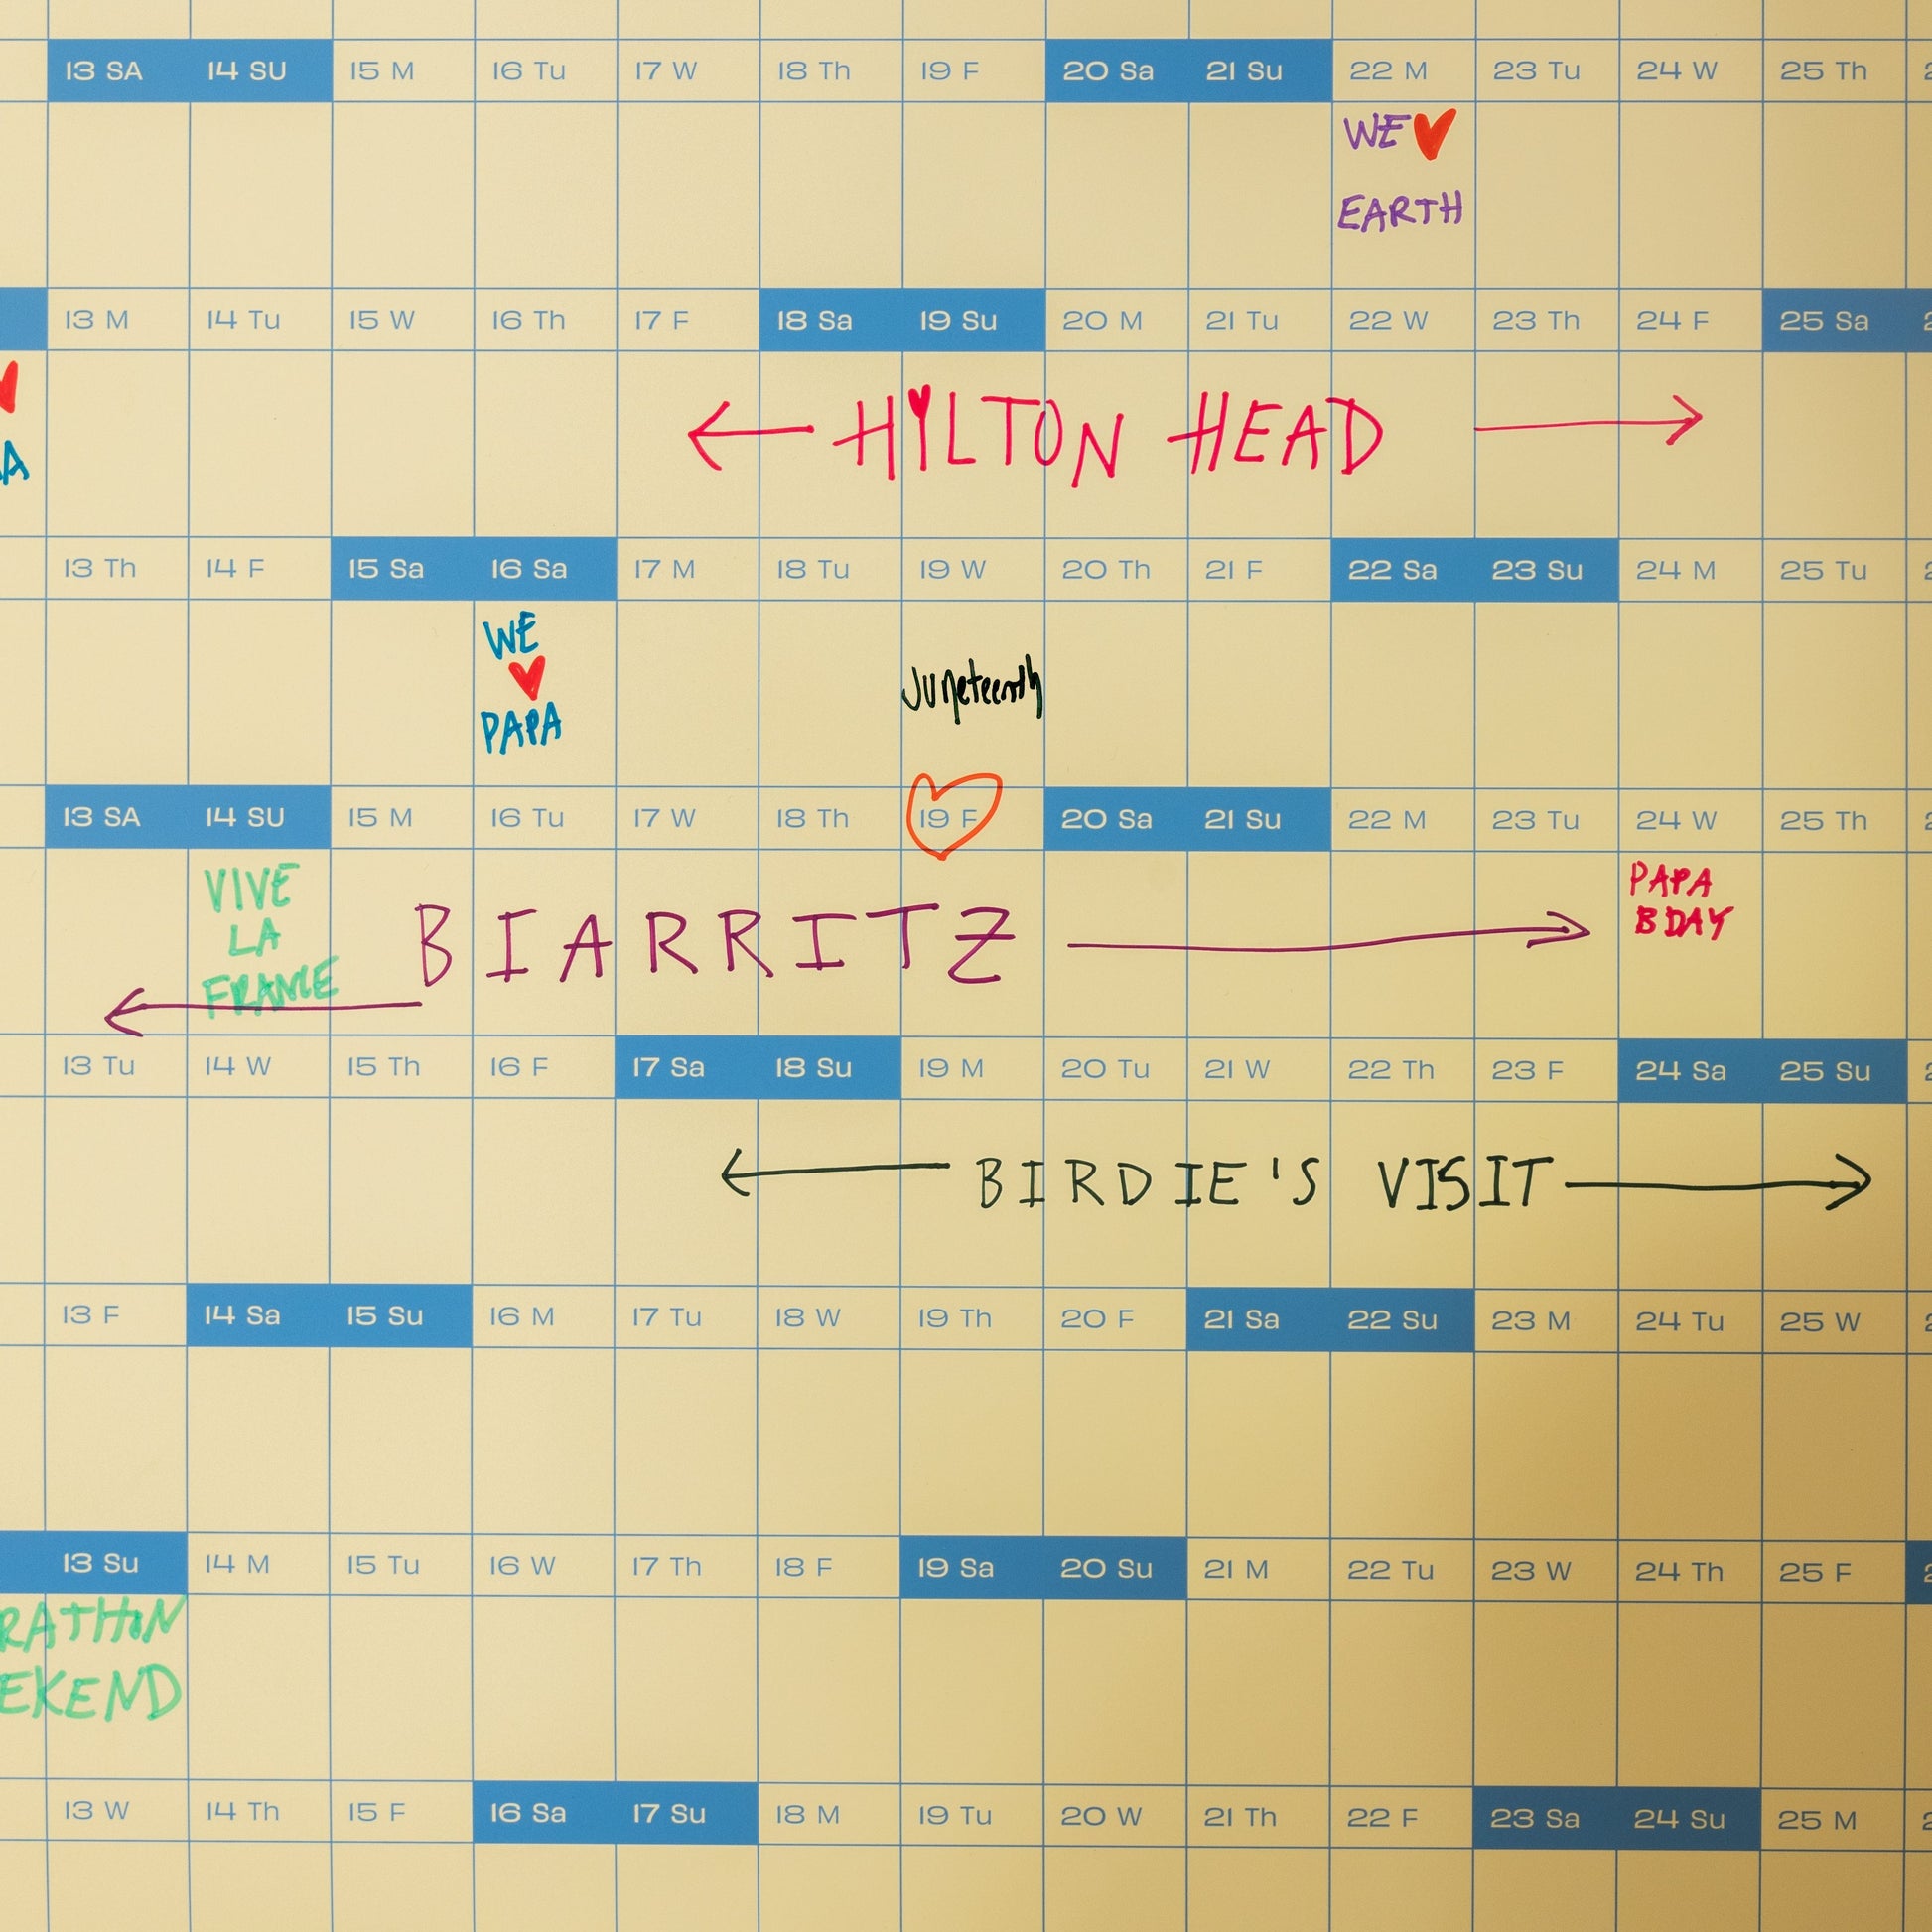 13 SA 14 SU 15 M 16 Tu 17 W 18 Th 19 F 20 Sa 21 Su 22 M 23 Tu 24 W 25 Th
WE ♥
EARTH
13 M 14 Tu 15 W 16 Th 17 F 18 Sa 19 Su 20 M 21 Tu 22 W 23 Th 24 F 25 Sa
← HILTON HEAD →
A
13 Th 14 F 15 Sa 16 Sa 17 M 18 Tu 19 W 20 Th 21 F 22 Sa 23 Su 24 M 25 Tu
WE
♥
PAPA
Juneteenth
13 SA 14 SU 15 M 16 Tu 17 W 18 Th 19 F 20 Sa 21 Su 22 M 23 Tu 24 W 25 Th
VIVE
LA
FRANCE
← BIARRITZ →
PAPA
BDAY
13 Tu 14 W 15 Th 16 F 17 Sa 18 Su 19 M 20 Tu 21 W 22 Th 23 F 24 Sa 25 Su
← BIRDIE'S VISIT →
13 F 14 Sa 15 Su 16 M 17 Tu 18 W 19 Th 20 F 21 Sa 22 Su 23 M 24 Tu 25 W
13 Su 14 M 15 Tu 16 W 17 Th 18 F 19 Sa 20 Su 21 M 22 Tu 23 W 24 Th 25 F
RATHON
EKEND
13 W 14 Th 15 F 16 Sa 17 Su 18 M 19 Tu 20 W 21 Th 22 F 23 Sa 24 Su 25 M